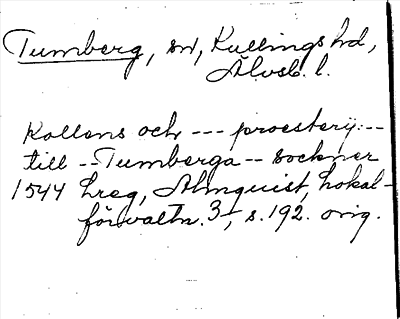 Tumberg, sn, Kullings hd,
Älvsb. l.
Kollens och --- proestery: --
till -- Tumberga -- sockner
1544 Lreg, Almquist, Lokal-
förvaltn. 3, s. 192. orig.